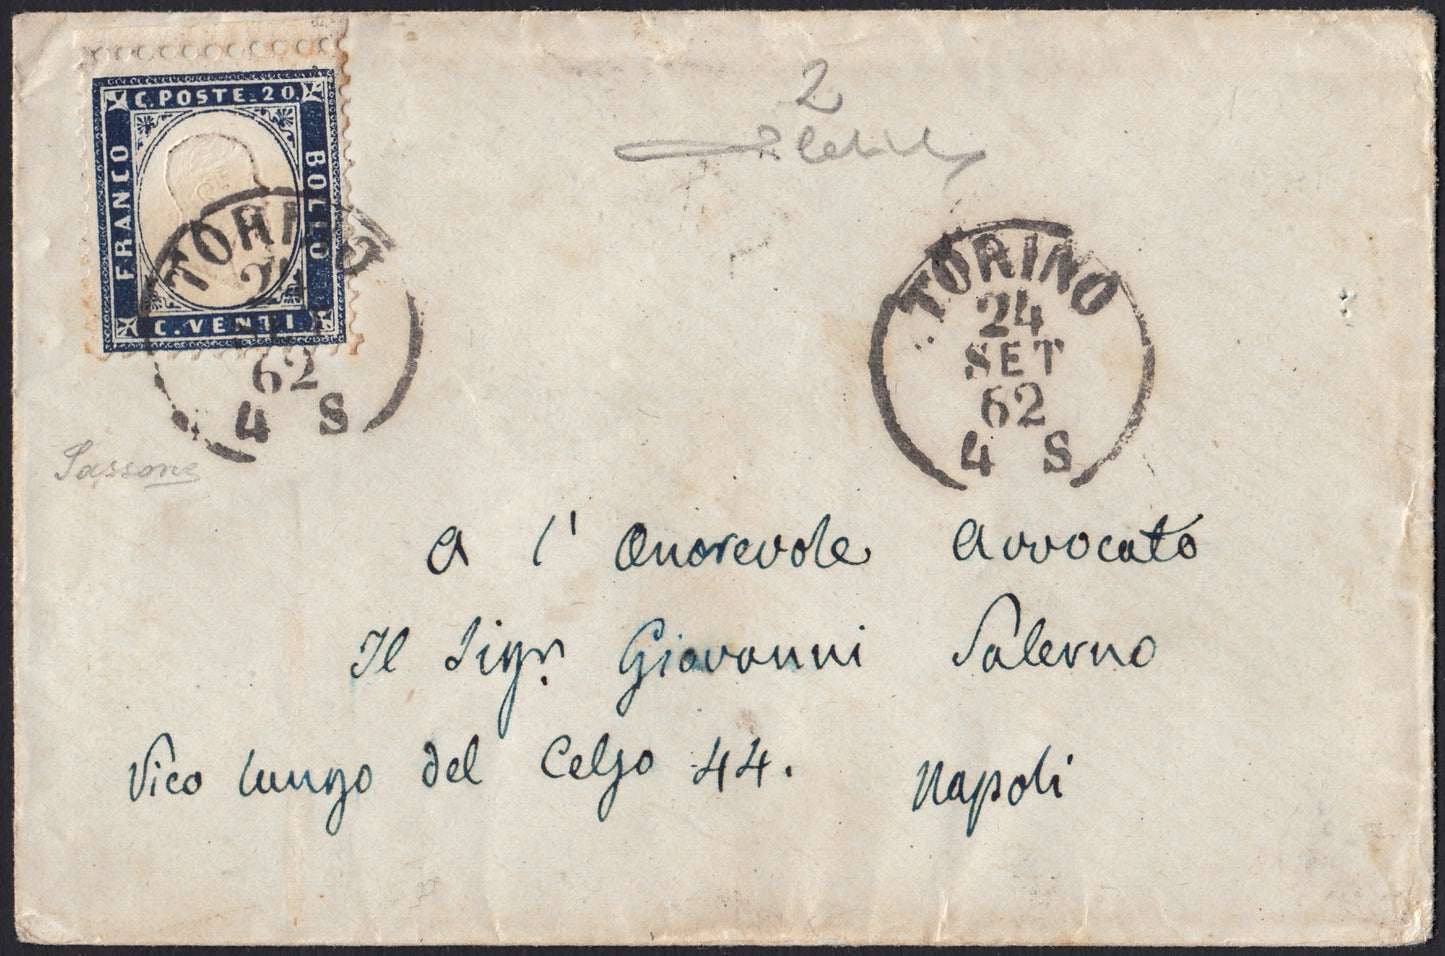 C. POSTE. 20.
FRANCO
BOLLO
C. VENTI.
TORINO
24
SET
62
4 S
2
TORINO
24
SET
62
4 S
Sassone
A l' Onorevole Avvocato
Il Sigr. Giovanni Salerno
Vico lungo del Celso 44.
Napoli